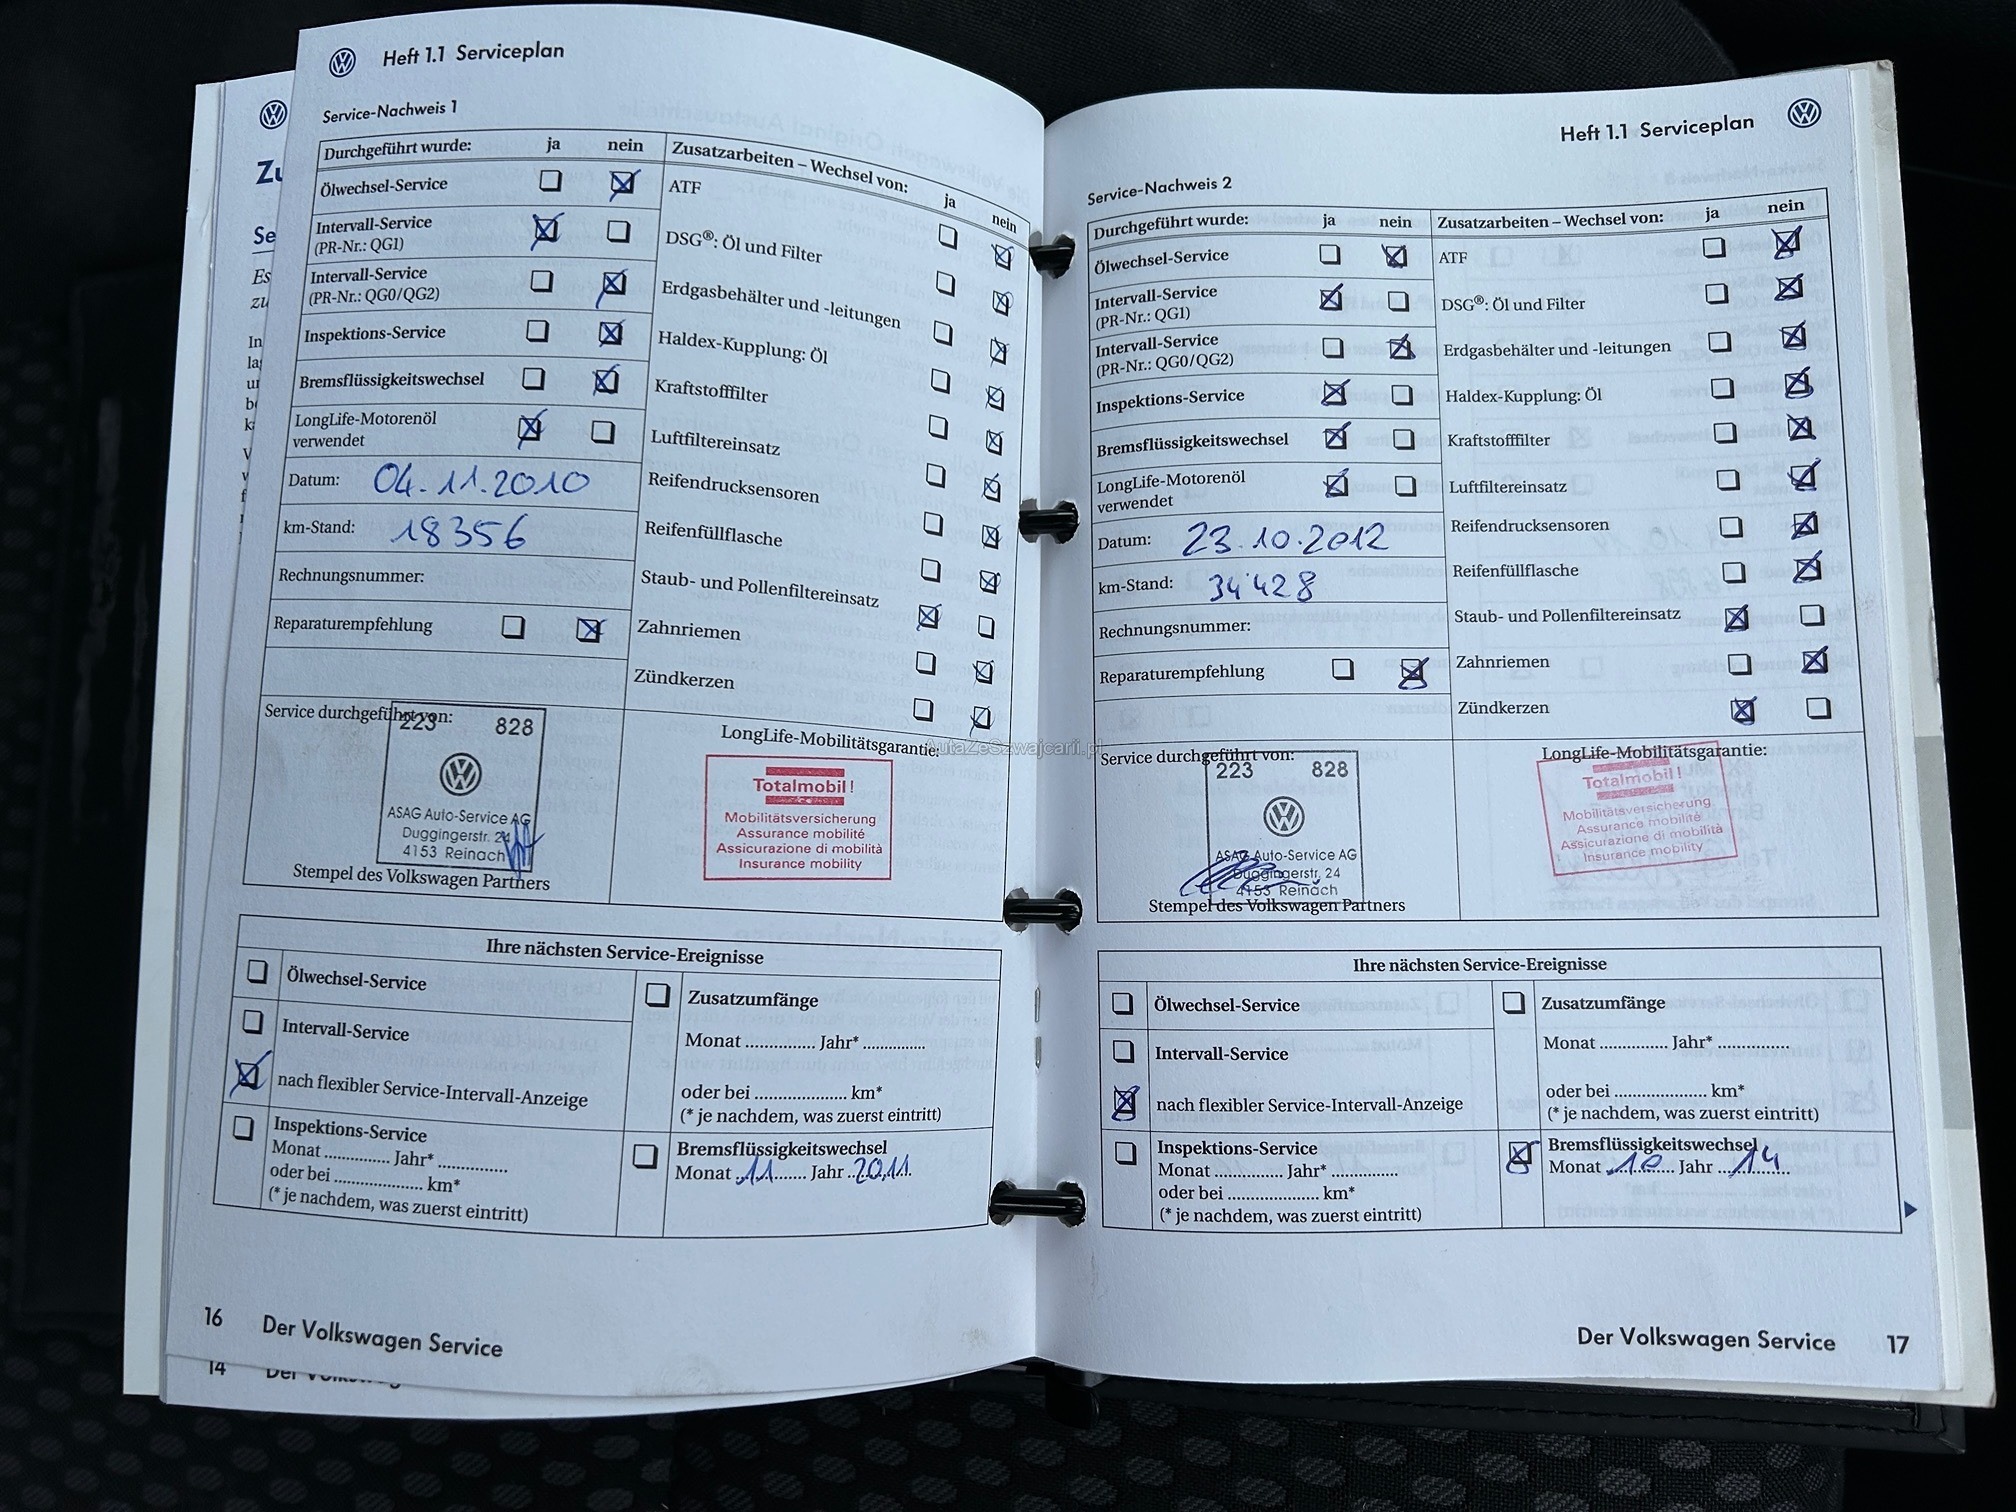 Heft 1.1 Serviceplan
Service-Nachweis 1
Durchgeführt wurde: ja nein
Ölwechsel-Service
Intervall-Service
(PR-Nr.: QG1)
Intervall-Service
(PR-Nr.: QG0/QG2)
Inspektions-Service
Bremsflüssigkeitswechsel
LongLife-Motorenöl
verwendet
Datum: 04.11.2010
km-Stand: 18356
Rechnungsnummer:
Reparaturempfehlung
Zusatzarbeiten – Wechsel von: ja nein
ATF
DSG®: Öl und Filter
Erdgasbehälter und -leitungen
Haldex-Kupplung: Öl
Kraftstofffilter
Luftfiltereinsatz
Reifendrucksensoren
Reifenfüllflasche
Staub- und Pollenfiltereinsatz
Zahnriemen
Zündkerzen
Service durchgeführt von:
223 828
ASAG Auto-Service AG
Duggingerstr. 24
4153 Reinach
Stempel des Volkswagen Partners
LongLife-Mobilitätsgarantie:
Totalmobil!
Mobilitätsversicherung
Assurance mobilité
Assicurazione di mobilità
Insurance mobility
Ihre nächsten Service-Ereignisse
Ölwechsel-Service
Intervall-Service
nach flexibler Service-Intervall-Anzeige
Inspektions-Service
Monat ............... Jahr* ...............
oder bei .................... km*
(* je nachdem, was zuerst eintritt)
Zusatzumfänge
Monat ............... Jahr* ..............
oder bei .................... km*
(* je nachdem, was zuerst eintritt)
Bremsflüssigkeitswechsel
Monat 11 Jahr 2011
16 Der Volkswagen Service
14
Zu
Se
Es
zu
In
AutaZeSzwajcarii.pl
Heft 1.1 Serviceplan
Service-Nachweis 2
Durchgeführt wurde: ja nein
Ölwechsel-Service
Intervall-Service
(PR-Nr.: QG1)
Intervall-Service
(PR-Nr.: QG0/QG2)
Inspektions-Service
Bremsflüssigkeitswechsel
LongLife-Motorenöl
verwendet
Datum: 23.10.2012
km-Stand: 34'428
Rechnungsnummer:
Reparaturempfehlung
Zusatzarbeiten – Wechsel von: ja nein
ATF
DSG®: Öl und Filter
Erdgasbehälter und -leitungen
Haldex-Kupplung: Öl
Kraftstofffilter
Luftfiltereinsatz
Reifendrucksensoren
Reifenfüllflasche
Staub- und Pollenfiltereinsatz
Zahnriemen
Zündkerzen
Service durchgeführt von:
223 828
ASAG Auto-Service AG
Duggingerstr. 24
4153 Reinach
Stempel des Volkswagen Partners
LongLife-Mobilitätsgarantie:
Totalmobil!
Mobilitätsversicherung
Assurance mobilité
Assicurazione di mobilità
Insurance mobility
Ihre nächsten Service-Ereignisse
Ölwechsel-Service
Intervall-Service
nach flexibler Service-Intervall-Anzeige
Inspektions-Service
Monat ............... Jahr* ...............
oder bei .................... km*
(* je nachdem, was zuerst eintritt)
Zusatzumfänge
Monat ............... Jahr* ...............
oder bei .................... km*
(* je nachdem, was zuerst eintritt)
Bremsflüssigkeitswechsel
Monat 10 Jahr 14
Der Volkswagen Service 17